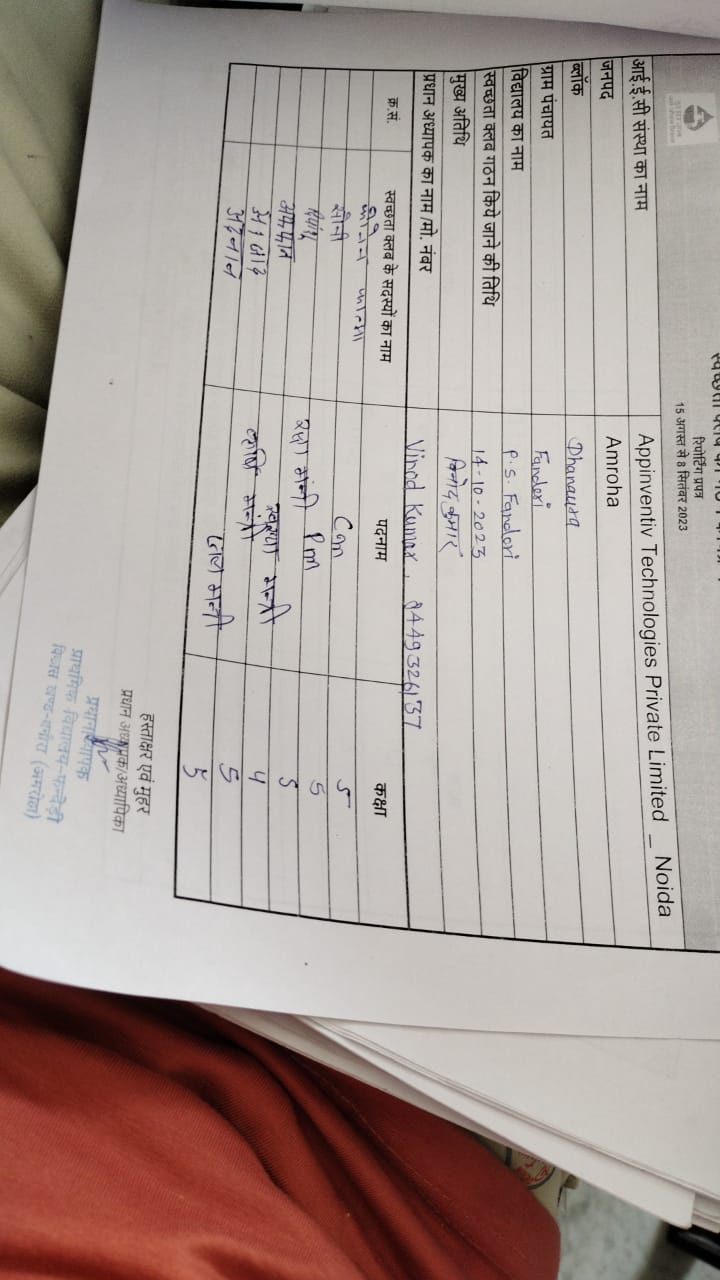 रिपोर्टिंग प्रपत्र
15 अगस्त से 8 सितंबर 2023
आई.ई.सी संस्था का नाम Appinventiv Technologies Private Limited _ Noida
जनपद Amroha
ब्लॉक Dhanaura
ग्राम पंचायत Fanderi
विद्यालय का नाम P.S. Fanderi
स्वच्छता क्लब गठन किये जाने की तिथि 14-10-2023
मुख्य अतिथि विनोद कुमार
प्रधान अध्यापक का नाम /मो. नंबर Vinod Kumar,
क्र.सं. स्वच्छता क्लब के सदस्यों का नाम पदनाम कक्षा
फातमा Cm 5
सैनी Pm 5
रक्षा मंत्री 5
मन्त्री 4
मन्त्री 5
अदनान मन्त्री 5
हस्ताक्षर एवं मुहर
प्रधान अध्यापक/अध्यापिका
प्रधानाध्यापक
प्राथमिक विद्यालय-फन्देड़ी